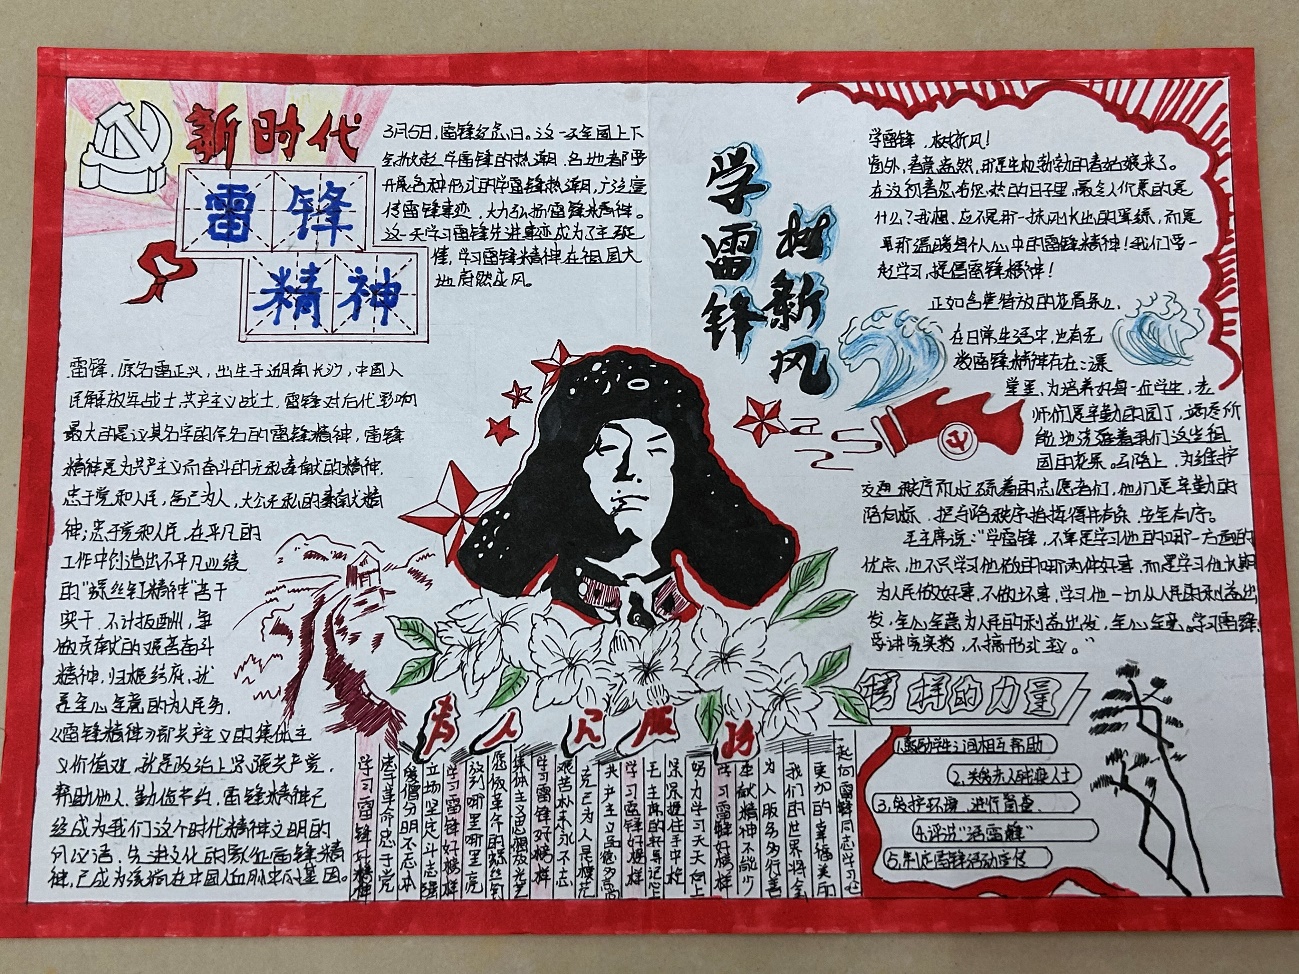 新时代
雷锋
精神
3月5日,雷锋纪念日。这一天全国上下
学雷锋的热潮,各地都要
开展各种形式的学雷锋热潮,广泛宣
传雷锋事迹,大力弘扬雷锋精神。
这一天学习雷锋先进事迹成为了主旋
律,学习雷锋精神在祖国大
地蔚然成风。
雷锋,原名雷正兴,出生于湖南长沙,中国人
民解放军战士,共产主义战士,雷锋对后代影响
最大的是以其名字的命名的雷锋精神,雷锋
精神是为共产主义而奋斗的无私奉献的精神,
忠于党和人民,舍己为人,大公无私的奉献精
神;忠于党和人民,在平凡的
工作中创造出不平凡业绩
的"螺丝钉精神"苦干
实干,不计报酬,争
做贡献的艰苦奋斗
精神,归根结底,就
是全心全意的为人民务,
《雷锋精神》所共产主义的集体主
义价值观,就是政治上紧跟共产党,
帮助他人,勤俭节约,雷锋精神已
经成为我们这个时代精神文明的
同义语,先进文化的象征雷锋精
神,已成为流淌在中国人血脉中的基因。
学雷锋
树新风
学雷锋,树新风!
窗外,春意盎然,那是生机勃勃的春姑娘来了。
在这份春意盎然的日子里,最令人欣喜的是
什么?我想,应不是那一抹刚长出的翠绿,而是
那温暖每个人心中的雷锋精神!我们要一
起学习,提倡雷锋精神!
正如含苞待放的花骨朵儿,
在日常生活中,也有无
数雷锋精神存在:课
堂里,为培养好每一位学生,老
师们是辛勤的园丁,竭尽所
能地浇灌着我们这些祖
国的花朵。马路上,为维护
交通秩序而忙碌着的志愿者们,他们是辛勤的
陪同标,把马路秩序指挥得井井有条,安全有序。
毛主席说:"学雷锋,不单是学习他的哪一方面的
优点,也不只学习他做的哪两件好事,而是学习他长期
为人民做好事,不做坏事,学习他一切从人民的利益出
发,全心全意为人民的利益出发,全心全意。学习雷锋
要讲究实教,不搞形式主义。"
为人民服务
榜样的力量
1.鼓励学生之间相互帮助
2.关爱老人残疾人士
3.爱护环境,进行简查
4.评选"活雷锋"
5.开展雷锋活动宣传
学习雷锋好榜样
忠于革命忠于党
爱憎分明不忘本
立场坚定斗志强
学习雷锋好榜样
放到哪里哪里亮
愿做革命的螺丝钉
集体主义思想放光芒
学习雷锋好榜样
艰苦朴素永不忘
克己为人是模范
共产主义品德多高尚
学习雷锋好榜样
毛主席的教导记心上
紧紧握住手中枪
努力学习天天向上
学习雷锋好榜样
奉献精神不能少
为人服务多行善
我们的世界将会
更加的幸福美丽
起向雷锋同志学习吧